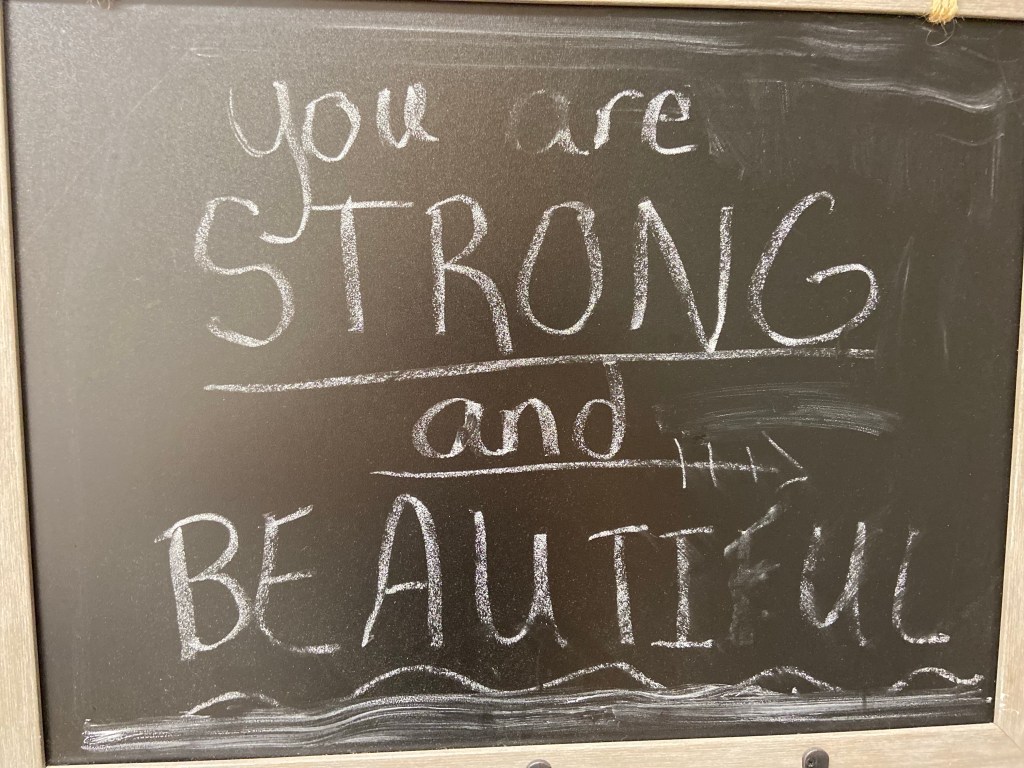 you are
STRONG
and
BEAUTIFUL